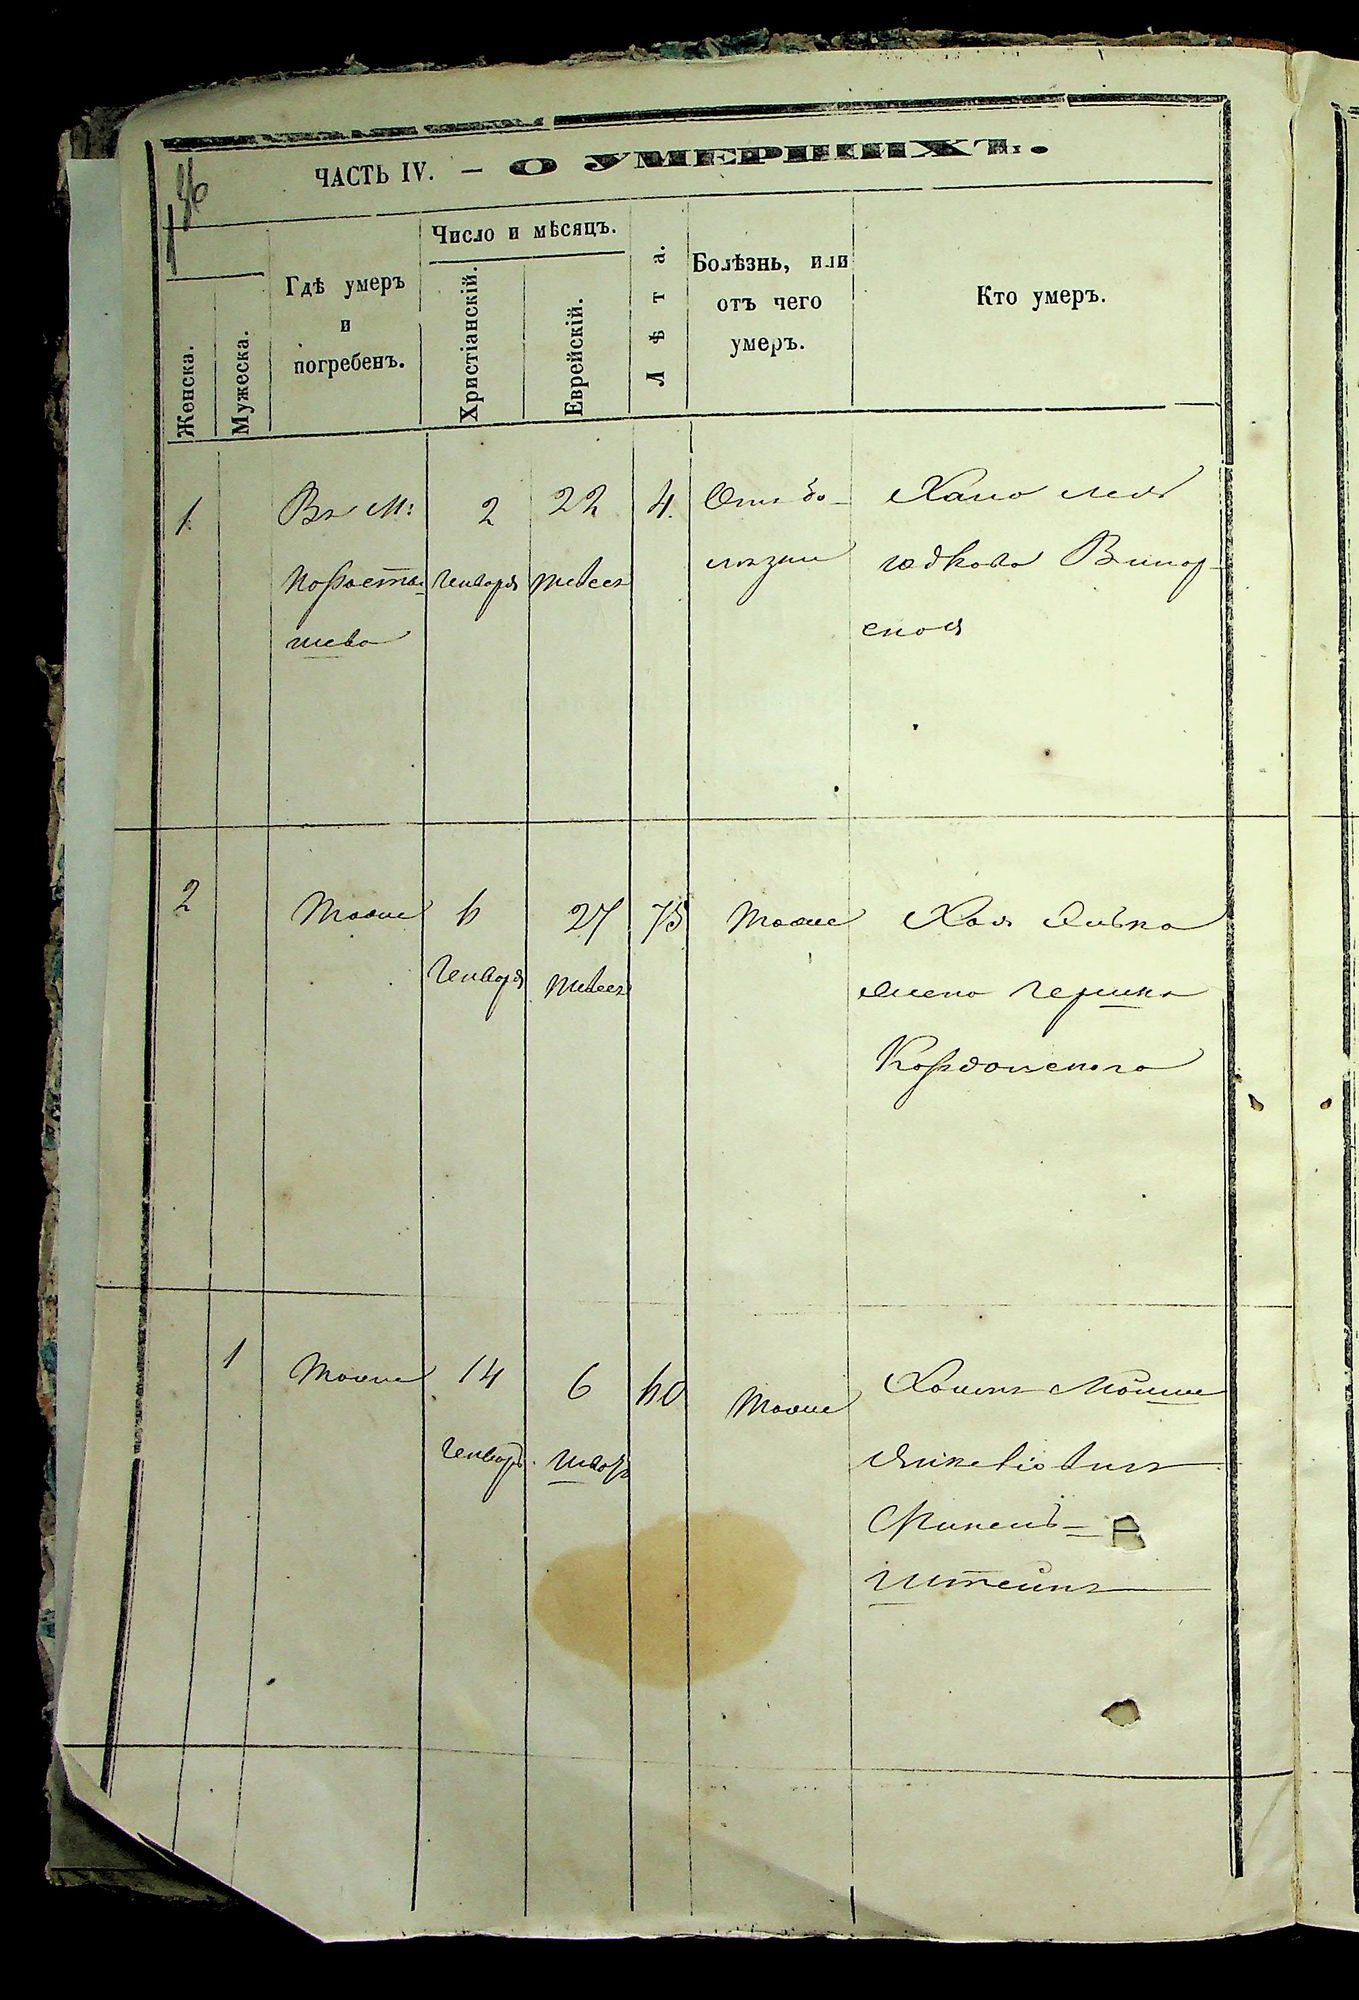 ЧАСТЬ IV. — О УМЕРШИХЪ.
Женска.
Мужеска.
Гдѣ умеръ
и
погребенъ.
Число и мѣсяцъ.
Христіанскій.
Еврейскій.
Лѣта.
Болѣзнь, или
отъ чего
умеръ.
Кто умеръ.
1
Въ М:
Коросты-
шевѣ
2
Генваря
22
тевес
4
Отъ бо-
лезни
Хана
Винор-
ская
2
тоже
6
Генваря
27
тевес
75
тоже
Хая
жена Гершка
Кордонского
1
тоже
14
Генваря
6
шват
60
тоже
Мошко
Янкелевичъ
Финкель-
штейнъ